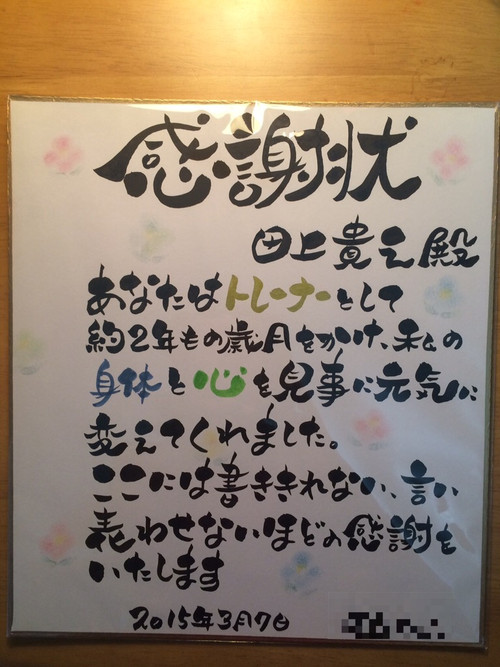 感謝状
田上貴之殿
あなたはトレーナーとして
約2年もの歳月をかけ、私の
身体と心を見事に元気に
変えてくれました。
ここには書ききれない、言い
表わせないほどの感謝を
いたします
2015年3月7日